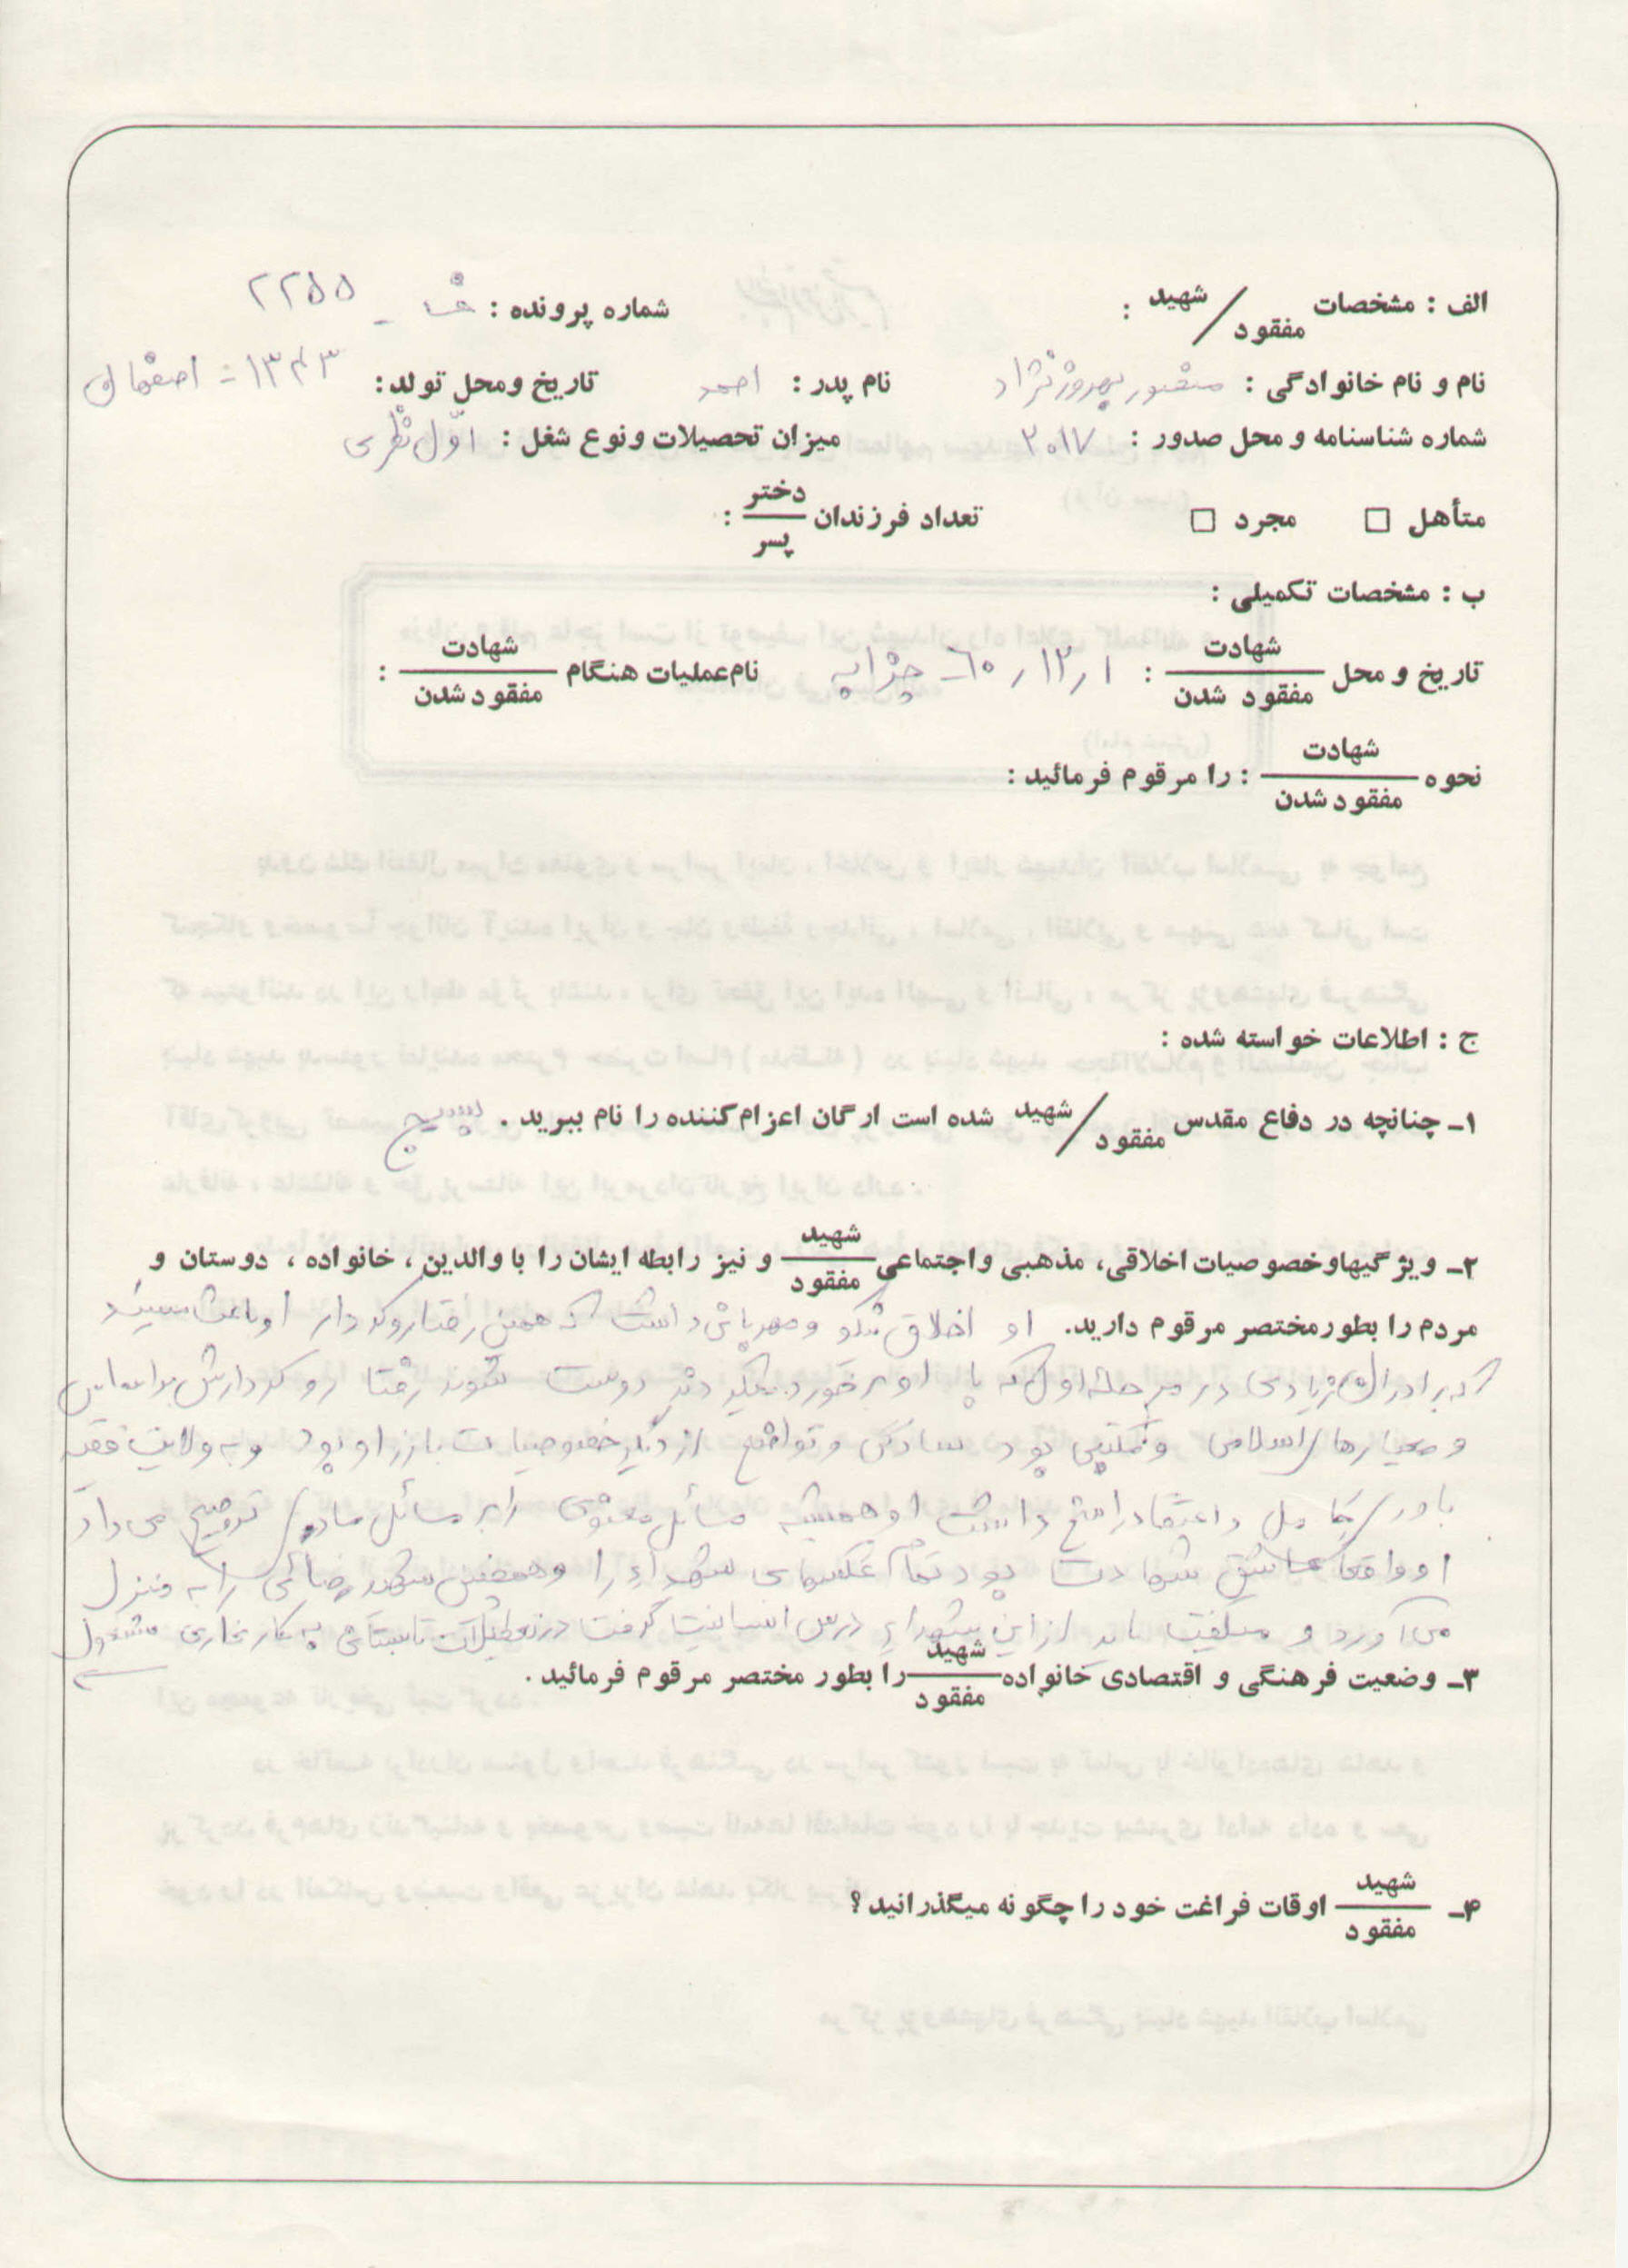 الف : مشخصات شهید / مفقود :
شماره پرونده : ش - ۲۲۵۵
نام و نام خانوادگی : منصور بهروز نژاد نام پدر : احمد تاریخ ومحل تولد: ۱۳۴۳ - اصفهان
شماره شناسنامه و محل صدور : ۳۰۱۷ میزان تحصیلات ونوع شغل : اوّل نظری
متأهل □ مجرد □ تعداد فرزندان دختر / پسر :
ب : مشخصات تکمیلی :
تاریخ و محل شهادت / مفقود شدن : ۱ / ۱۲ / ۶۰ - چزابه نام عملیات هنگام شهادت / مفقود شدن :
نحوه شهادت / مفقود شدن : را مرقوم فرمائید :
ج : اطلاعات خواسته شده :
۱ـ چنانچه در دفاع مقدس شهید / مفقود شده است ارگان اعزام کننده را نام ببرید . بسیج
۲ـ ویژگیهاوخصوصیات اخلاقی، مذهبی واجتماعی شهید / مفقود و نیز رابطه ایشان را با والدین ، خانواده ، دوستان و
مردم را بطورمختصر مرقوم دارید. او اخلاق نیکو و مهربانی داشت که همین رفتار و کردار او باعث میشد
که برادران زیادی در مرحله اول که با او برخورد میکردند دوست شوند رفتار و کردارش بر اساس
و معیارهای اسلامی و مکتبی بود سادگی و تواضع از دیگر خصوصیات بارز او بود و به ولایت فقیه
باور کامل و اعتقاد راسخ داشت او همیشه مسائل معنوی را به مسائل مادی ترجیح می داد
او واقعا عاشق شهادت بود تمام عکسهای شهداء را و همچنین شهید رجائی را به منزل
می آورد و میگفت باید از این شهداء درس انسانیت گرفت در تعطیلات تابستانی به کار نجاری مشغول
۳ـ وضعیت فرهنگی و اقتصادی خانواده شهید / مفقود را بطور مختصر مرقوم فرمائید .
۴ـ شهید / مفقود اوقات فراغت خود را چگونه میگذرانید ؟